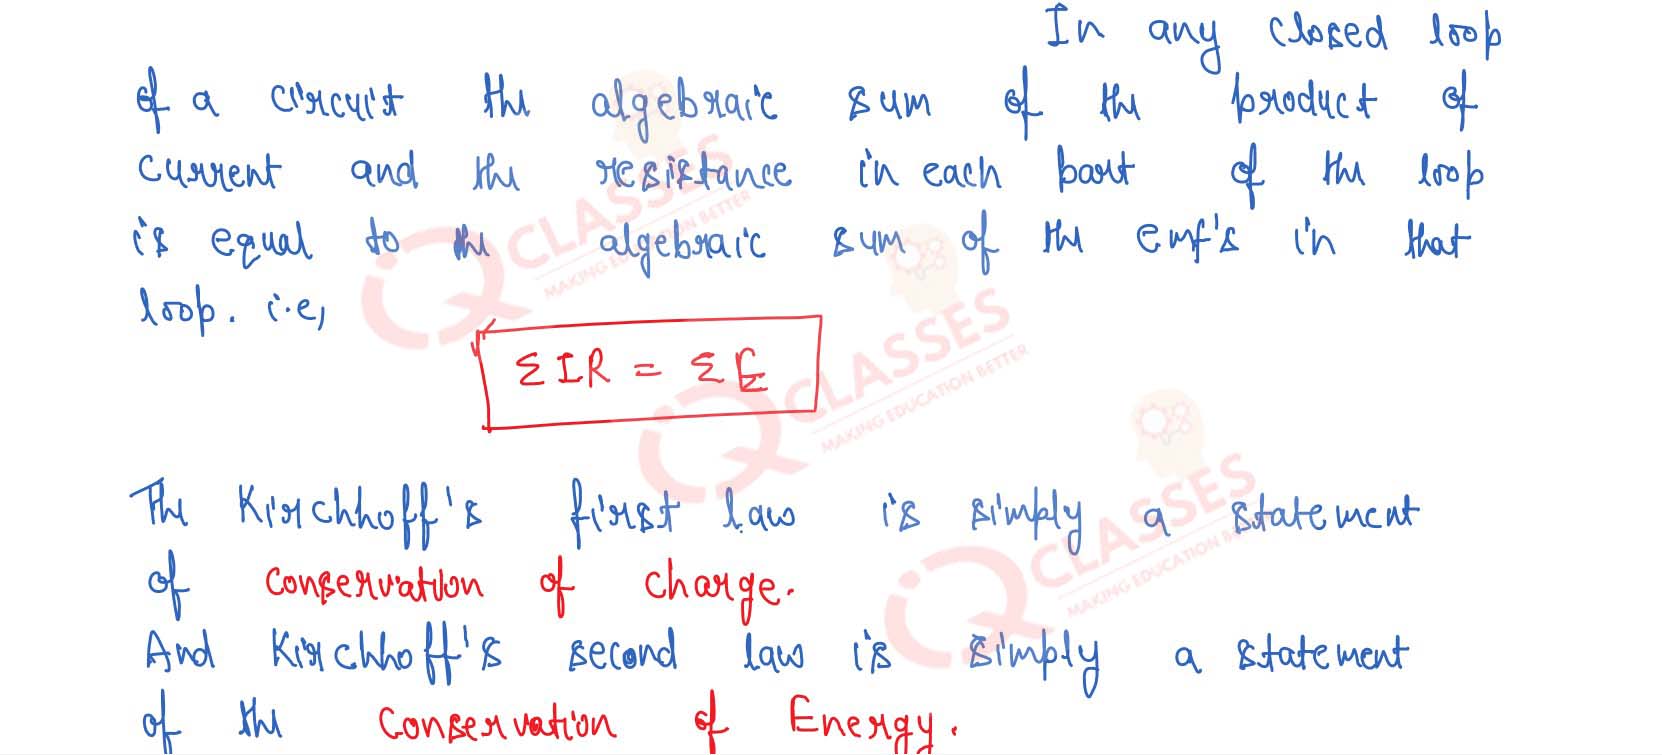 In any closed loop
of a circuit the algebraic sum of the product of
current and the resistance in each part of the loop
is equal to the algebraic sum of the emf's in that
loop. i.e,
Σ IR = Σ E
The Kirchhoff's first law is simply a statement
of Conservation of charge.
And Kirchhoff's second law is simply a statement
of the Conservation of Energy.
IQ CLASSES
MAKING EDUCATION BETTER
IQ CLASSES
MAKING EDUCATION BETTER
IQ CLASSES
MAKING EDUCATION BETTER